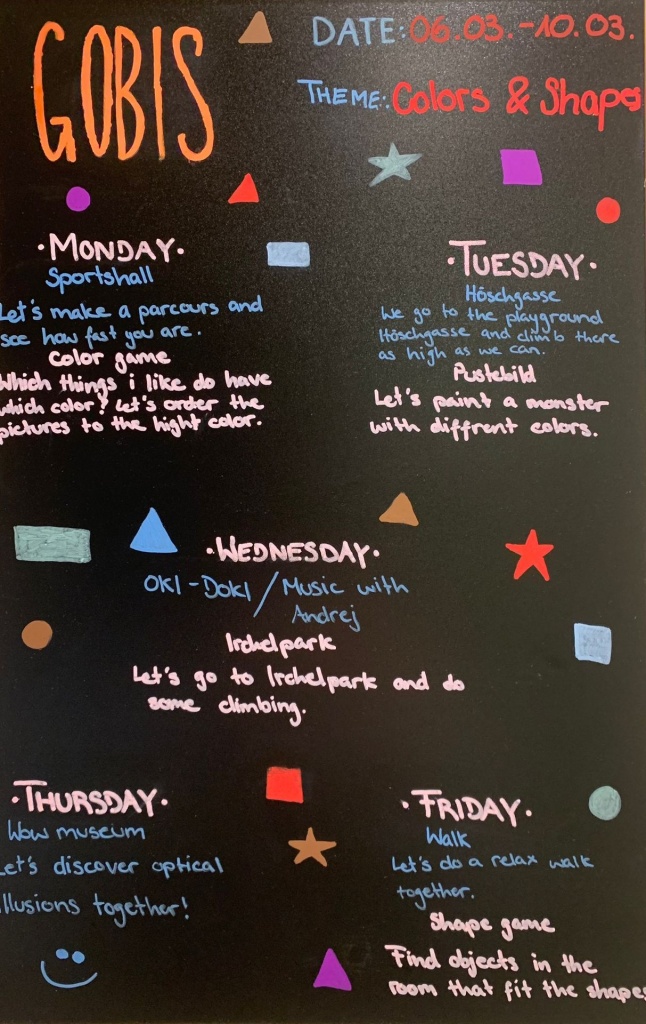 GOBIS
DATE: 06.03.-10.03.
THEME: Colors & Shapes
·MONDAY·
Sportshall
Let's make a parcours and
see how fast you are.
Color game
Which things i like do have
which color? Let's order the
pictures to the hight color.
·TUESDAY·
Höschgasse
We go to the playground
Höschgasse and climb there
as high as we can.
Pustebild
Let's paint a monster
with diffrent colors.
·WEDNESDAY·
OKI-DOKI / Music with
Andrej
Irchelpark
Let's go to Irchelpark and do
some climbing.
·THURSDAY·
Wow museum
Let's discover optical
illusions together!
·FRIDAY·
Walk
Let's do a relax walk
together.
Shape game
Find objects in the
room that fit the shapes